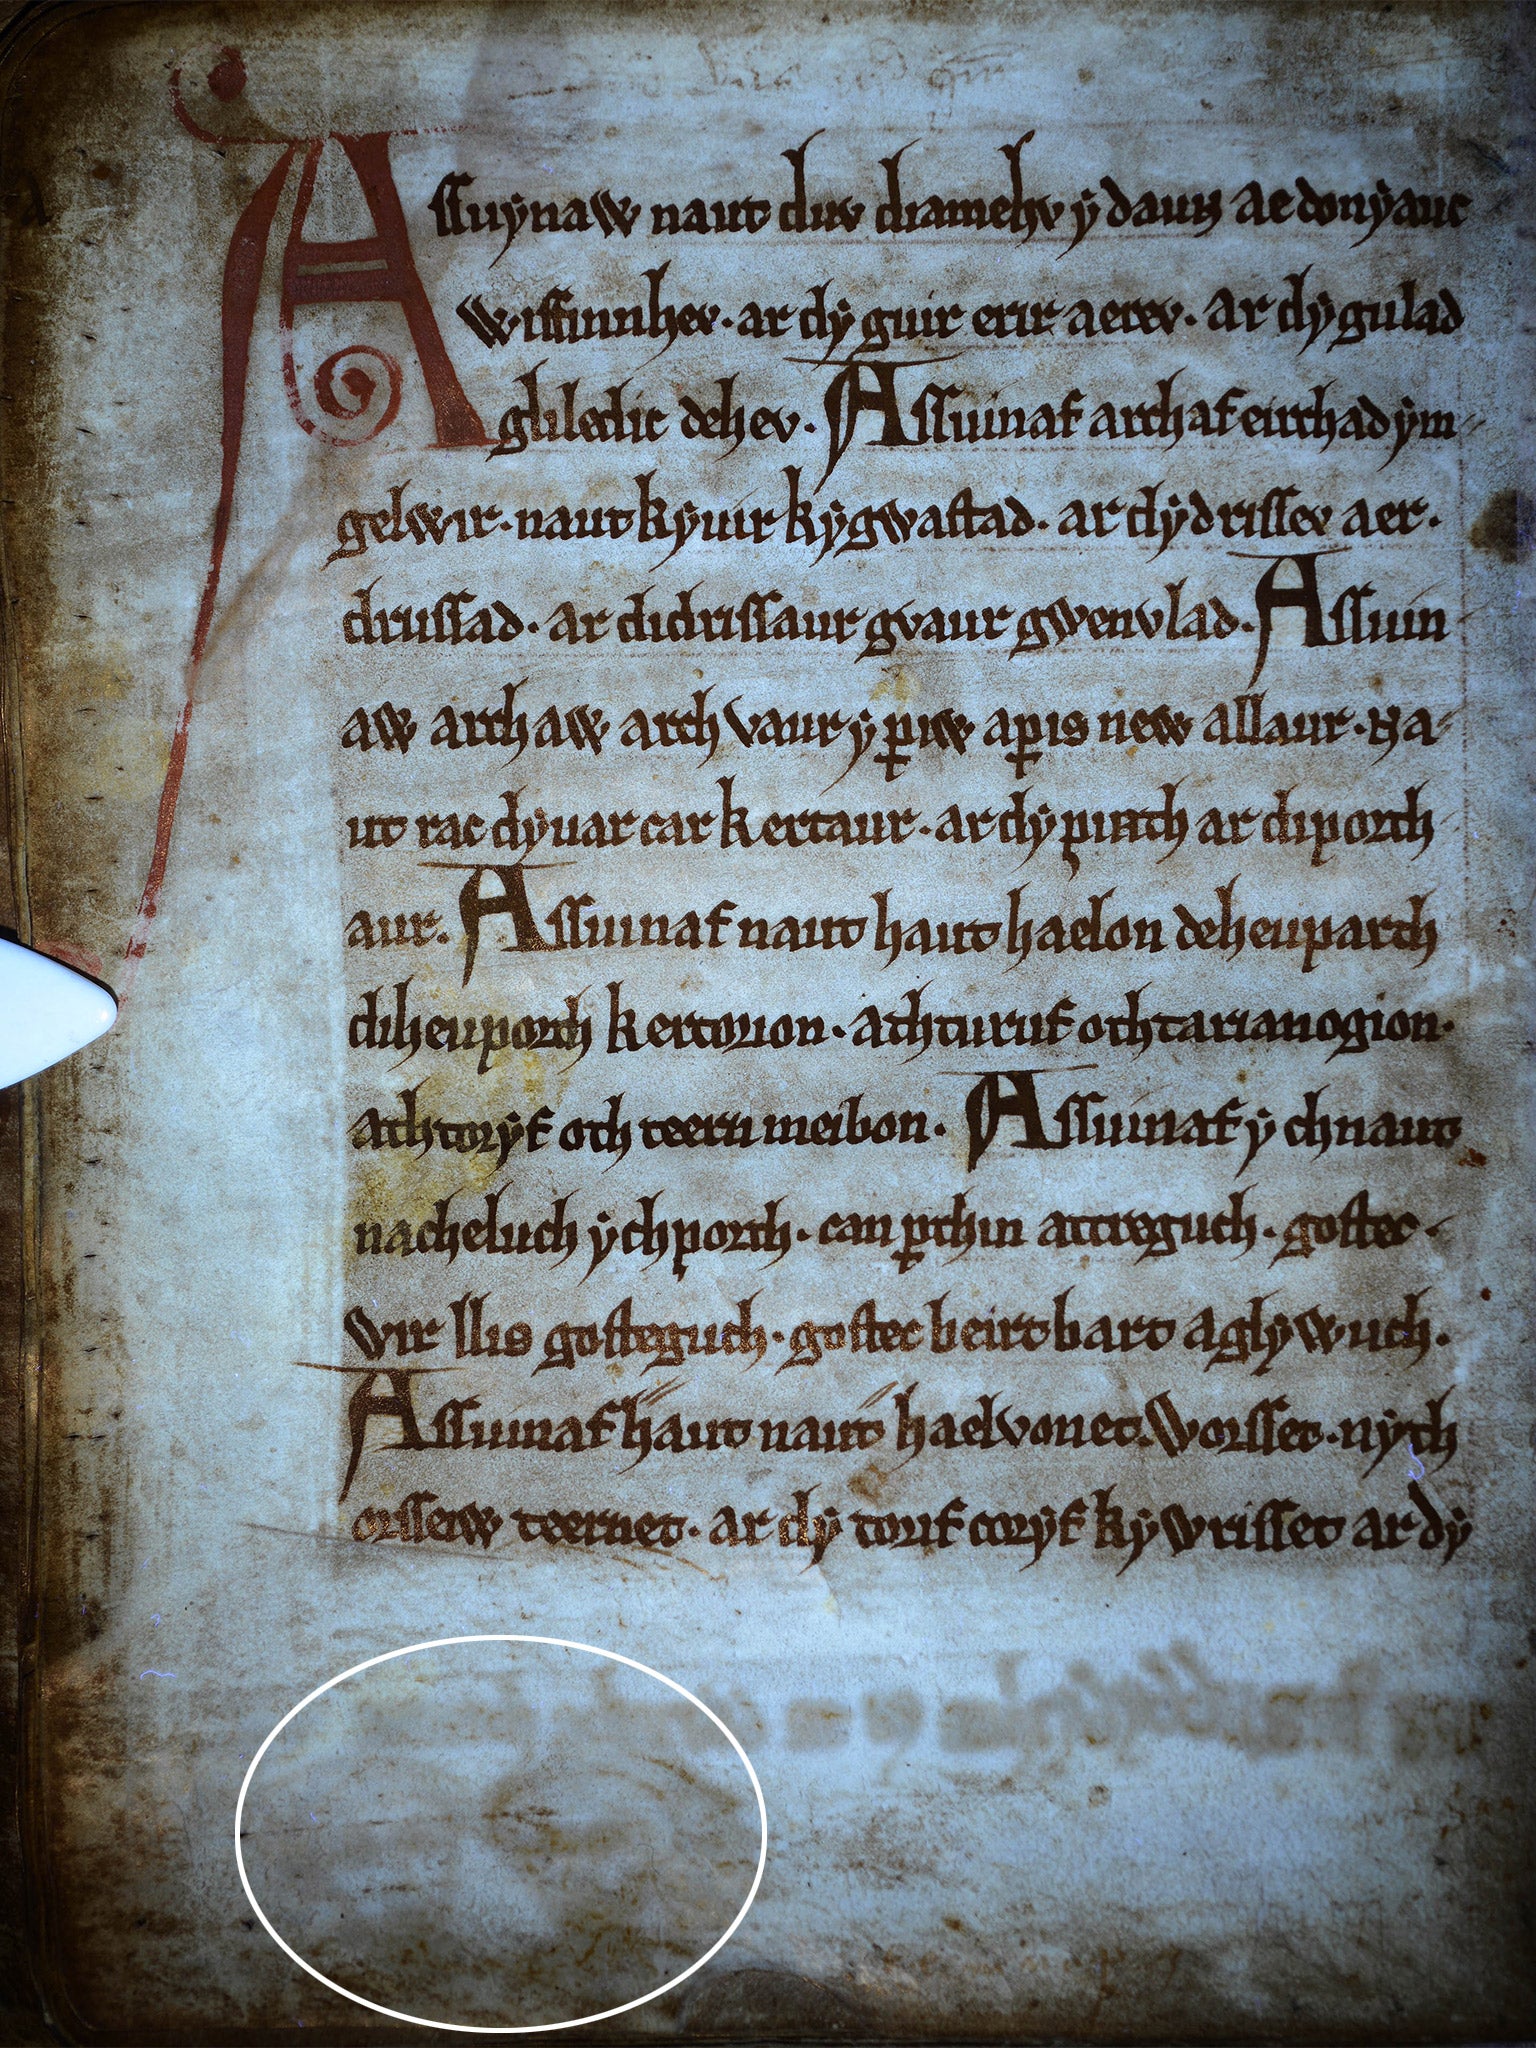 Assuynaw naut duv diamehv y daun ae donyauc
wissuinhev. ar dy guir erir aerev. ar dy gulad
guledic dehev. Assuinaf archaf eirchad ym
gelwir. naut kyuir kygwastad. ar dy drissev aer.
drussad. ar didrissaur gvaur gwenvlad. Assuin
aw archaw arch vaur y periw aperis new allaur. Na
ut rac dy uar car kertaur. ar dy pirrth ar diporth
aur. Assuinaf naut haut haelon deheuparth
diheuporth kertorion. athturuf othtarianogion.
athtoryf oth teern meibon. Assuinaf y chnaut
nacheluch ychporth. can perthin attreguch. gostec
wir llis gosteguch. gostec beirt bart aglywuch.
Assuinaf haut naut haelvonet. Worsset. nyth
orsseiw teernet. ar dy toruf toryf kywrisset ar dy